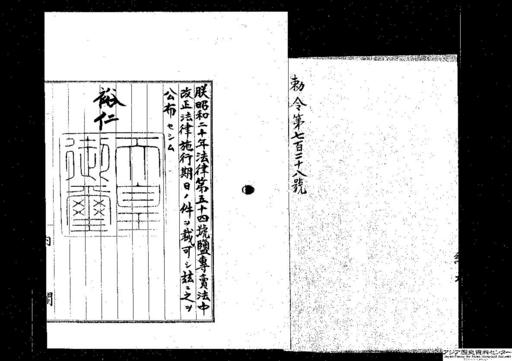 勅令第七百二十八號
朕昭和二十年法律第五十四號鹽專賣法中
改正法律施行期日ノ件ヲ裁可シ茲ニ之ヲ
公布セシム
裕仁
天皇
御璽
内閣
アジア歴史資料センター